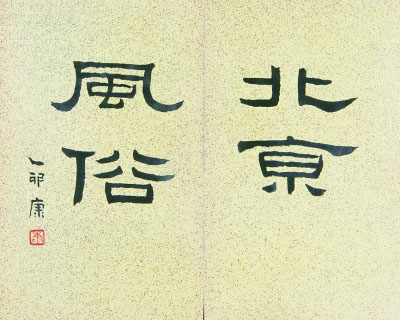 北京
風俗
康